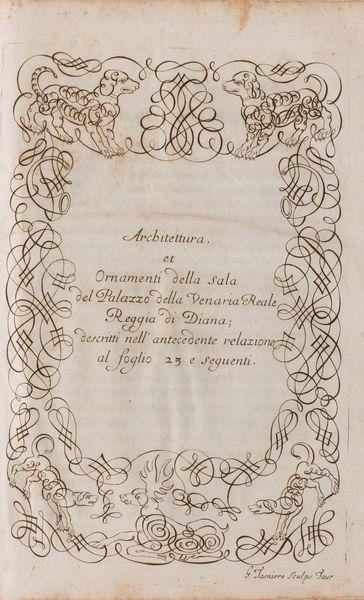 Architettura,
et
Ornamenti della Sala
del Palazzo della Venaria Reale
Reggia di Diana;
descritti nell' antecedente relazione
al foglio 23 e seguenti.
G. Tasniere Sculps. Taur